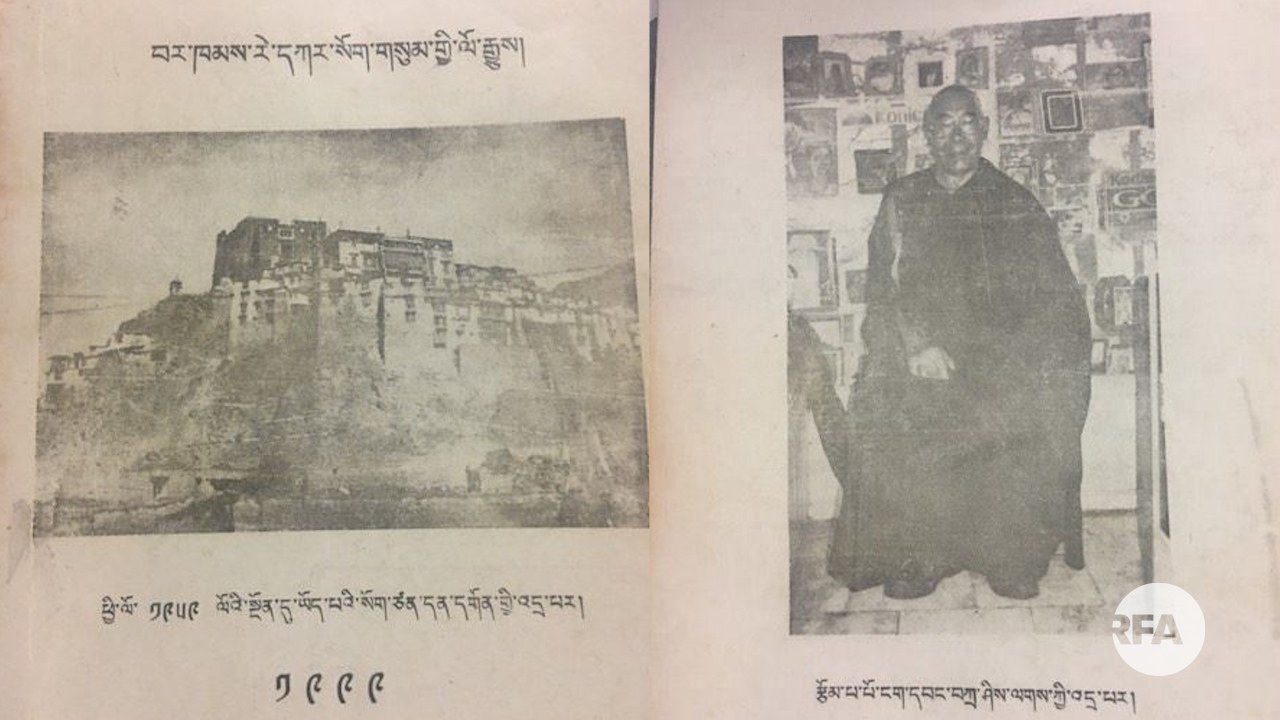 བར་ཁམས་རེ་དཀར་སོག་གསུམ་གྱི་ལོ་རྒྱུས།
ཕྱི་ལོ་ ༡༩༥༩ ལོའི་སྔོན་དུ་ཡོད་པའི་སོག་ཙན་དན་དགོན་གྱི་འདྲ་པར།
༡༩༩༩
རྩོམ་པ་པོ་ངག་དབང་བཀྲ་ཤིས་ལགས་ཀྱི་འདྲ་པར།
RFA